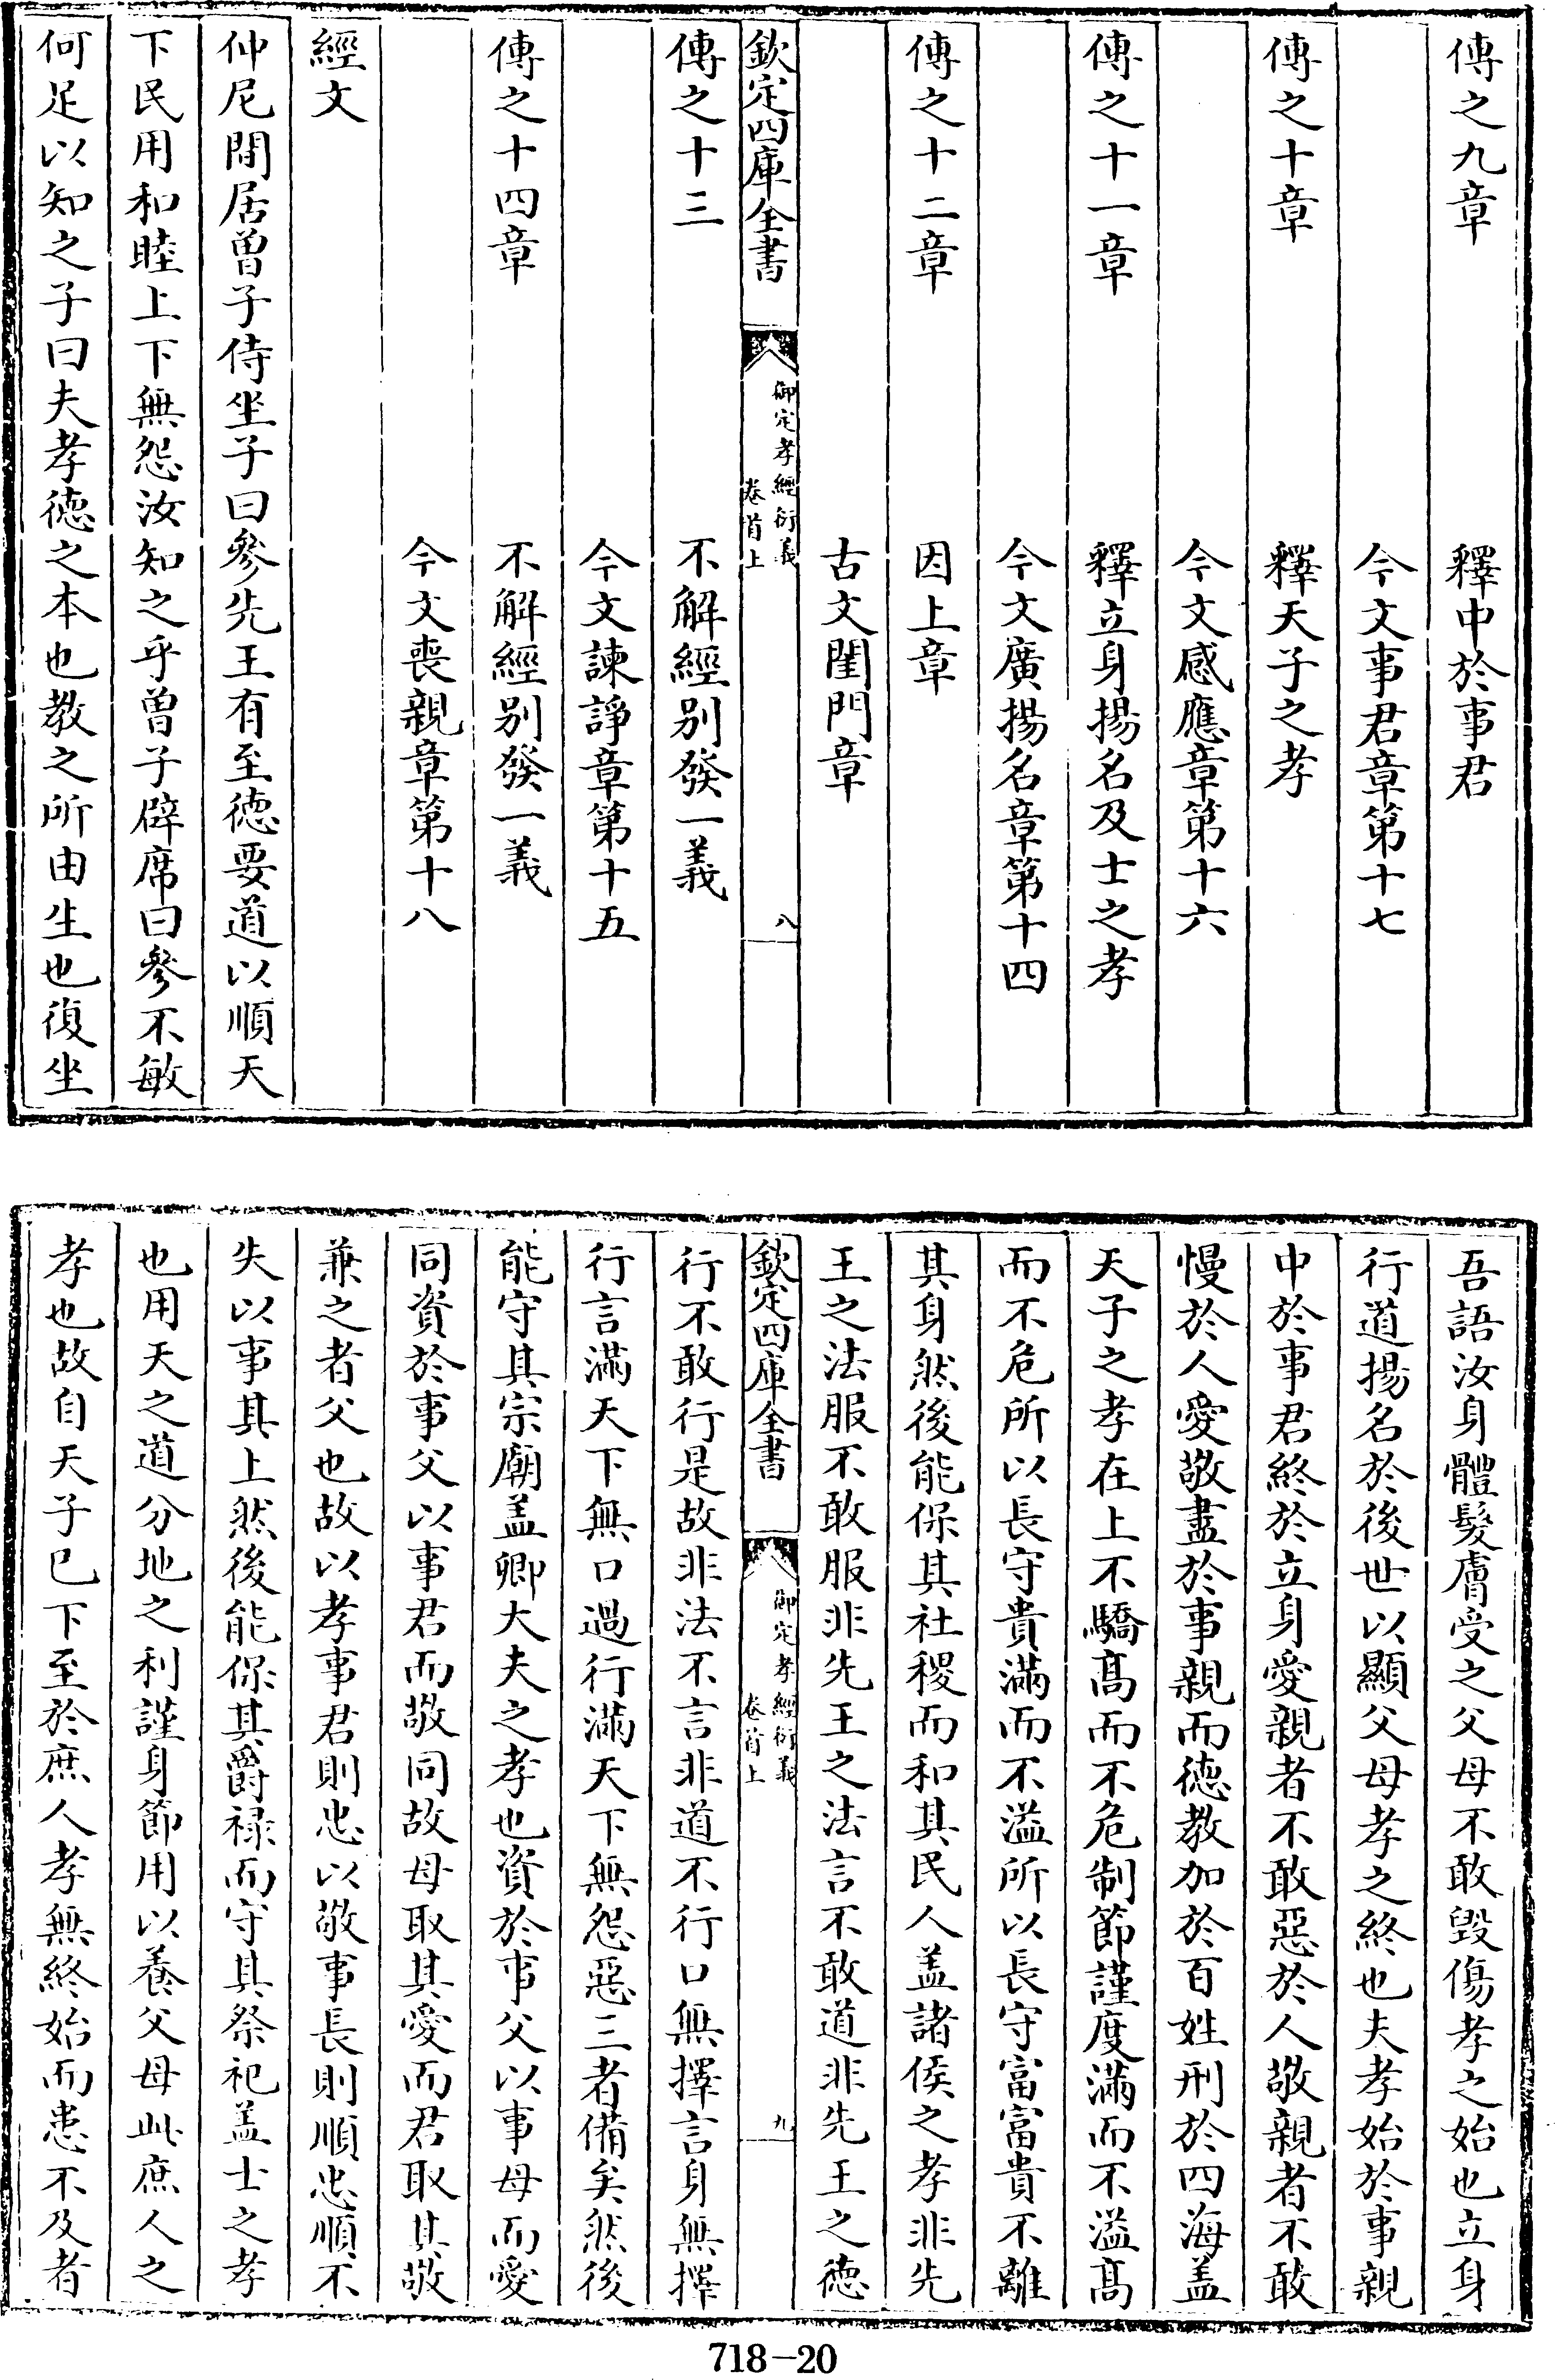 傳之九章　釋中於事君
今文事君章第十七
傳之十章　釋天子之孝
今文感應章第十六
傳之十一章　釋立身揚名及士之孝
今文廣揚名章第十四
傳之十二章　因上章
古文閨門章
欽定四庫全書　御定孝經衍義　卷首上　八
傳之十三　不解經别發一義
今文諫諍章第十五
傳之十四章　不解經别發一義
今文喪親章第十八
經文
仲尼閒居曾子侍坐子曰參先王有至德要道以順天
下民用和睦上下無怨汝知之乎曾子辟席曰參不敏
何足以知之子曰夫孝德之本也教之所由生也復坐
吾語汝身體髮膚受之父母不敢毁傷孝之始也立身
行道揚名於後世以顯父母孝之終也夫孝始於事親
中於事君終於立身愛親者不敢惡於人敬親者不敢
慢於人愛敬盡於事親而德教加於百姓刑於四海盖
天子之孝在上不驕髙而不危制節謹度滿而不溢髙
而不危所以長守貴滿而不溢所以長守富富貴不離
其身然後能保其社稷而和其民人盖諸侯之孝非先
王之法服不敢服非先王之法言不敢道非先王之德
欽定四庫全書　御定孝經衍義　卷首上　九
行不敢行是故非法不言非道不行口無擇言身無擇
行言滿天下無口過行滿天下無怨惡三者備矣然後
能守其宗廟盖卿大夫之孝也資於事父以事母而愛
同資於事父以事君而敬同故母取其愛而君取其敬
兼之者父也故以孝事君則忠以敬事長則順忠順不
失以事其上然後能保其爵禄而守其祭祀盖士之孝
也用天之道分地之利謹身節用以養父母此庶人之
孝也故自天子已下至於庶人孝無終始而患不及者
718-20